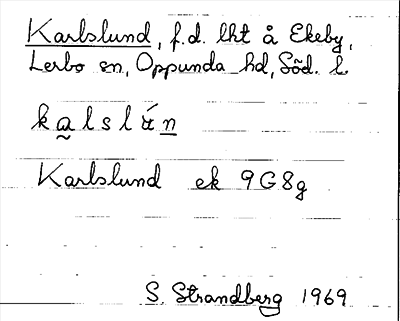 Karlslund, f.d. lht å Ekeby,
Lerbo sn, Oppunda hd, Söd. l.
Karlslund ek 9G8g
S. Strandberg 1969